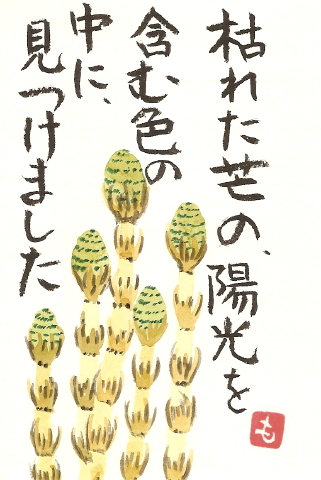 枯れた芒の、陽光を
含む色の
中に、
見つけました
も